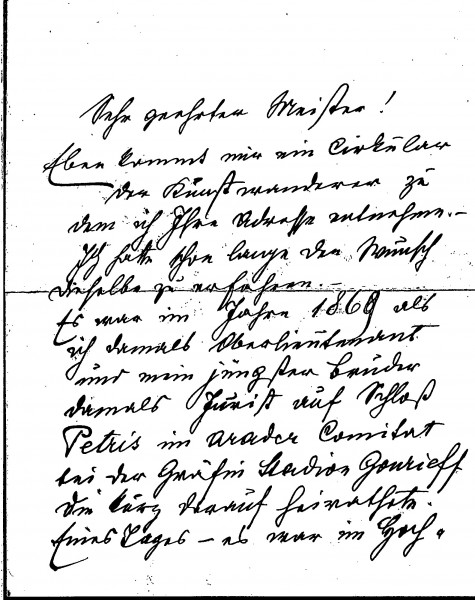 Sehr geehrter Meister!
Eben kommt mir ein Cirkular
der Kunstwanderer zu
dem ich Ihre Adresse entnehme.–
Ich hatte schon lange den Wunsch
dieselbe zu erfahren.–
Es war im Jahre 1869 als
ich damals Oberlieutenant
und mein jüngster Bruder
damals Jurist auf Schloß
Petris im Arader Comitat
bei der Gräfin Stadion Gourieff
die kurz darauf heirathete.
Eines Tages – es war im Hoch-